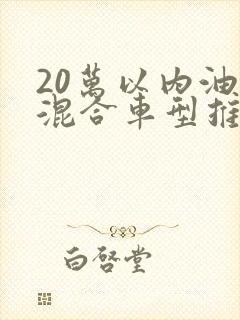 20萬以內油
混合車型推
白啓堂